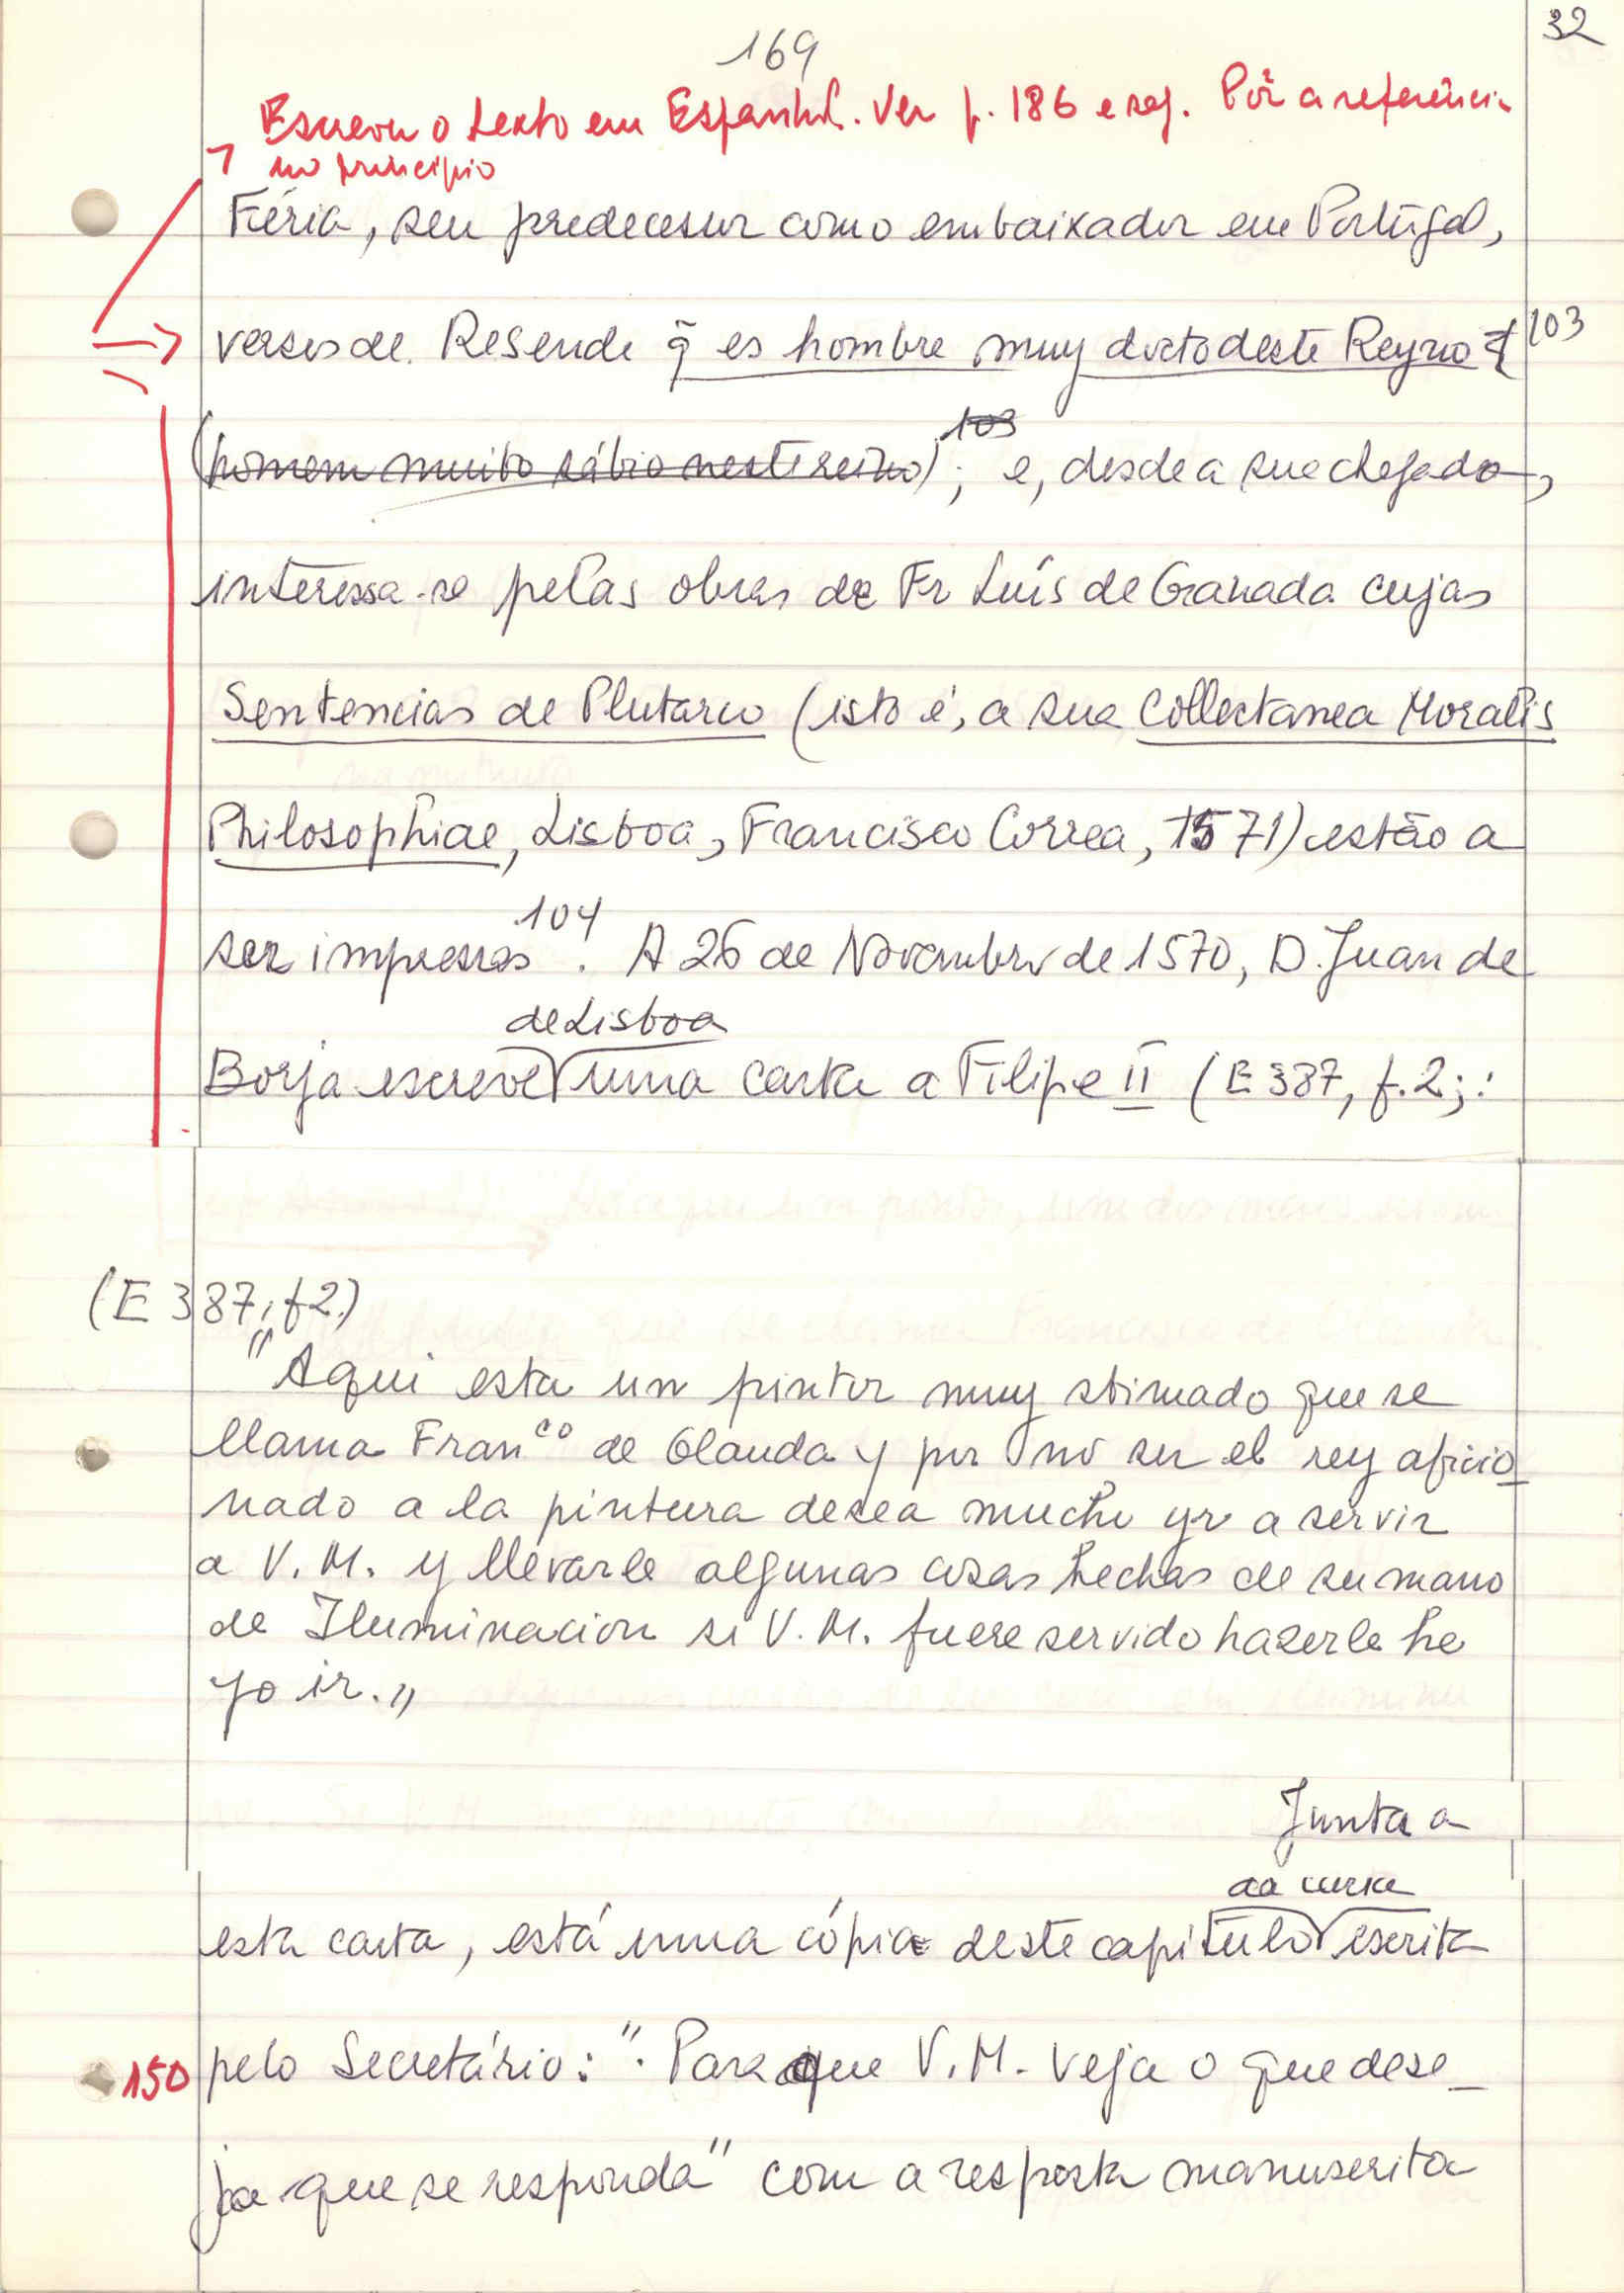 169
32
Escreveu o texto em Espanhol. Ver p. 186 e seg. Pôr a referência
no princípio
Féria, seu predecesur como embaixador em Portugal,
versos de Resende q̃ es hombre muy docto deste Reyno 103
(homem muito sábio neste reino) 103; e, desde a sua chegada,
interessa-se pelas obras de Fr Luís de Granada cujas
Sentencias de Plutarco (isto é, a sua Collectanea Moralis
Philosophiae, Lisboa, Francisco Correa, 1571) estão a
ser impressas 104. A 26 de Novembro de 1570, D. Juan de
de Lisboa
Borja escreve uma carta a Filipe II (E 387, f. 2;:
(E 387, f2.)
"Aqui esta un pintor muy stimado que se
llama Fran<sup>co</sup> de Olanda y por no ser el rey aficio
nado a la pintura desea mucho yr a servir
a V. M. y llevarle algunas cosas hechas de su mano
de Iluminacion si V. M. fuere servido hazerle he
yo ir."
Junta a
da carta
esta carta, está uma cópia deste capítulo escrita
pelo Secretário: ". Para que V. M. veja o que dese_
150
ja que se responda" com a resposta manuscrita